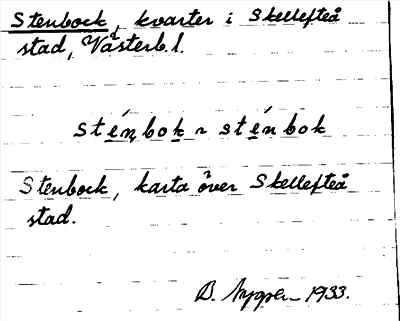 Stenbock, kvarter i Skellefteå
stad, Västerb.l.
sténbok ~ sténbok
Stenbock, karta över Skellefteå
stad.
B. 1933.